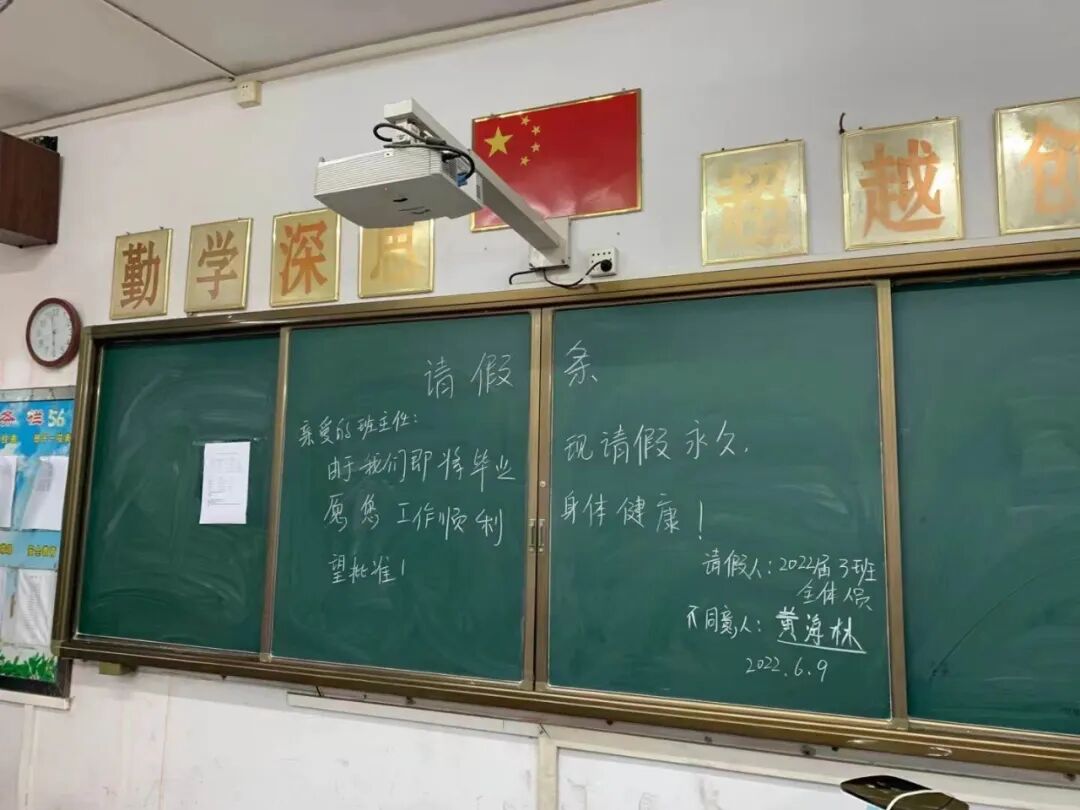 勤学深思
超越创
请假条
亲爱的班主任:
由于我们即将毕业 现请假永久,
愿您工作顺利 身体健康!
望批准!
请假人:2022届3班
全体人员
不同意人:黄海林
2022.6.9
条栏56